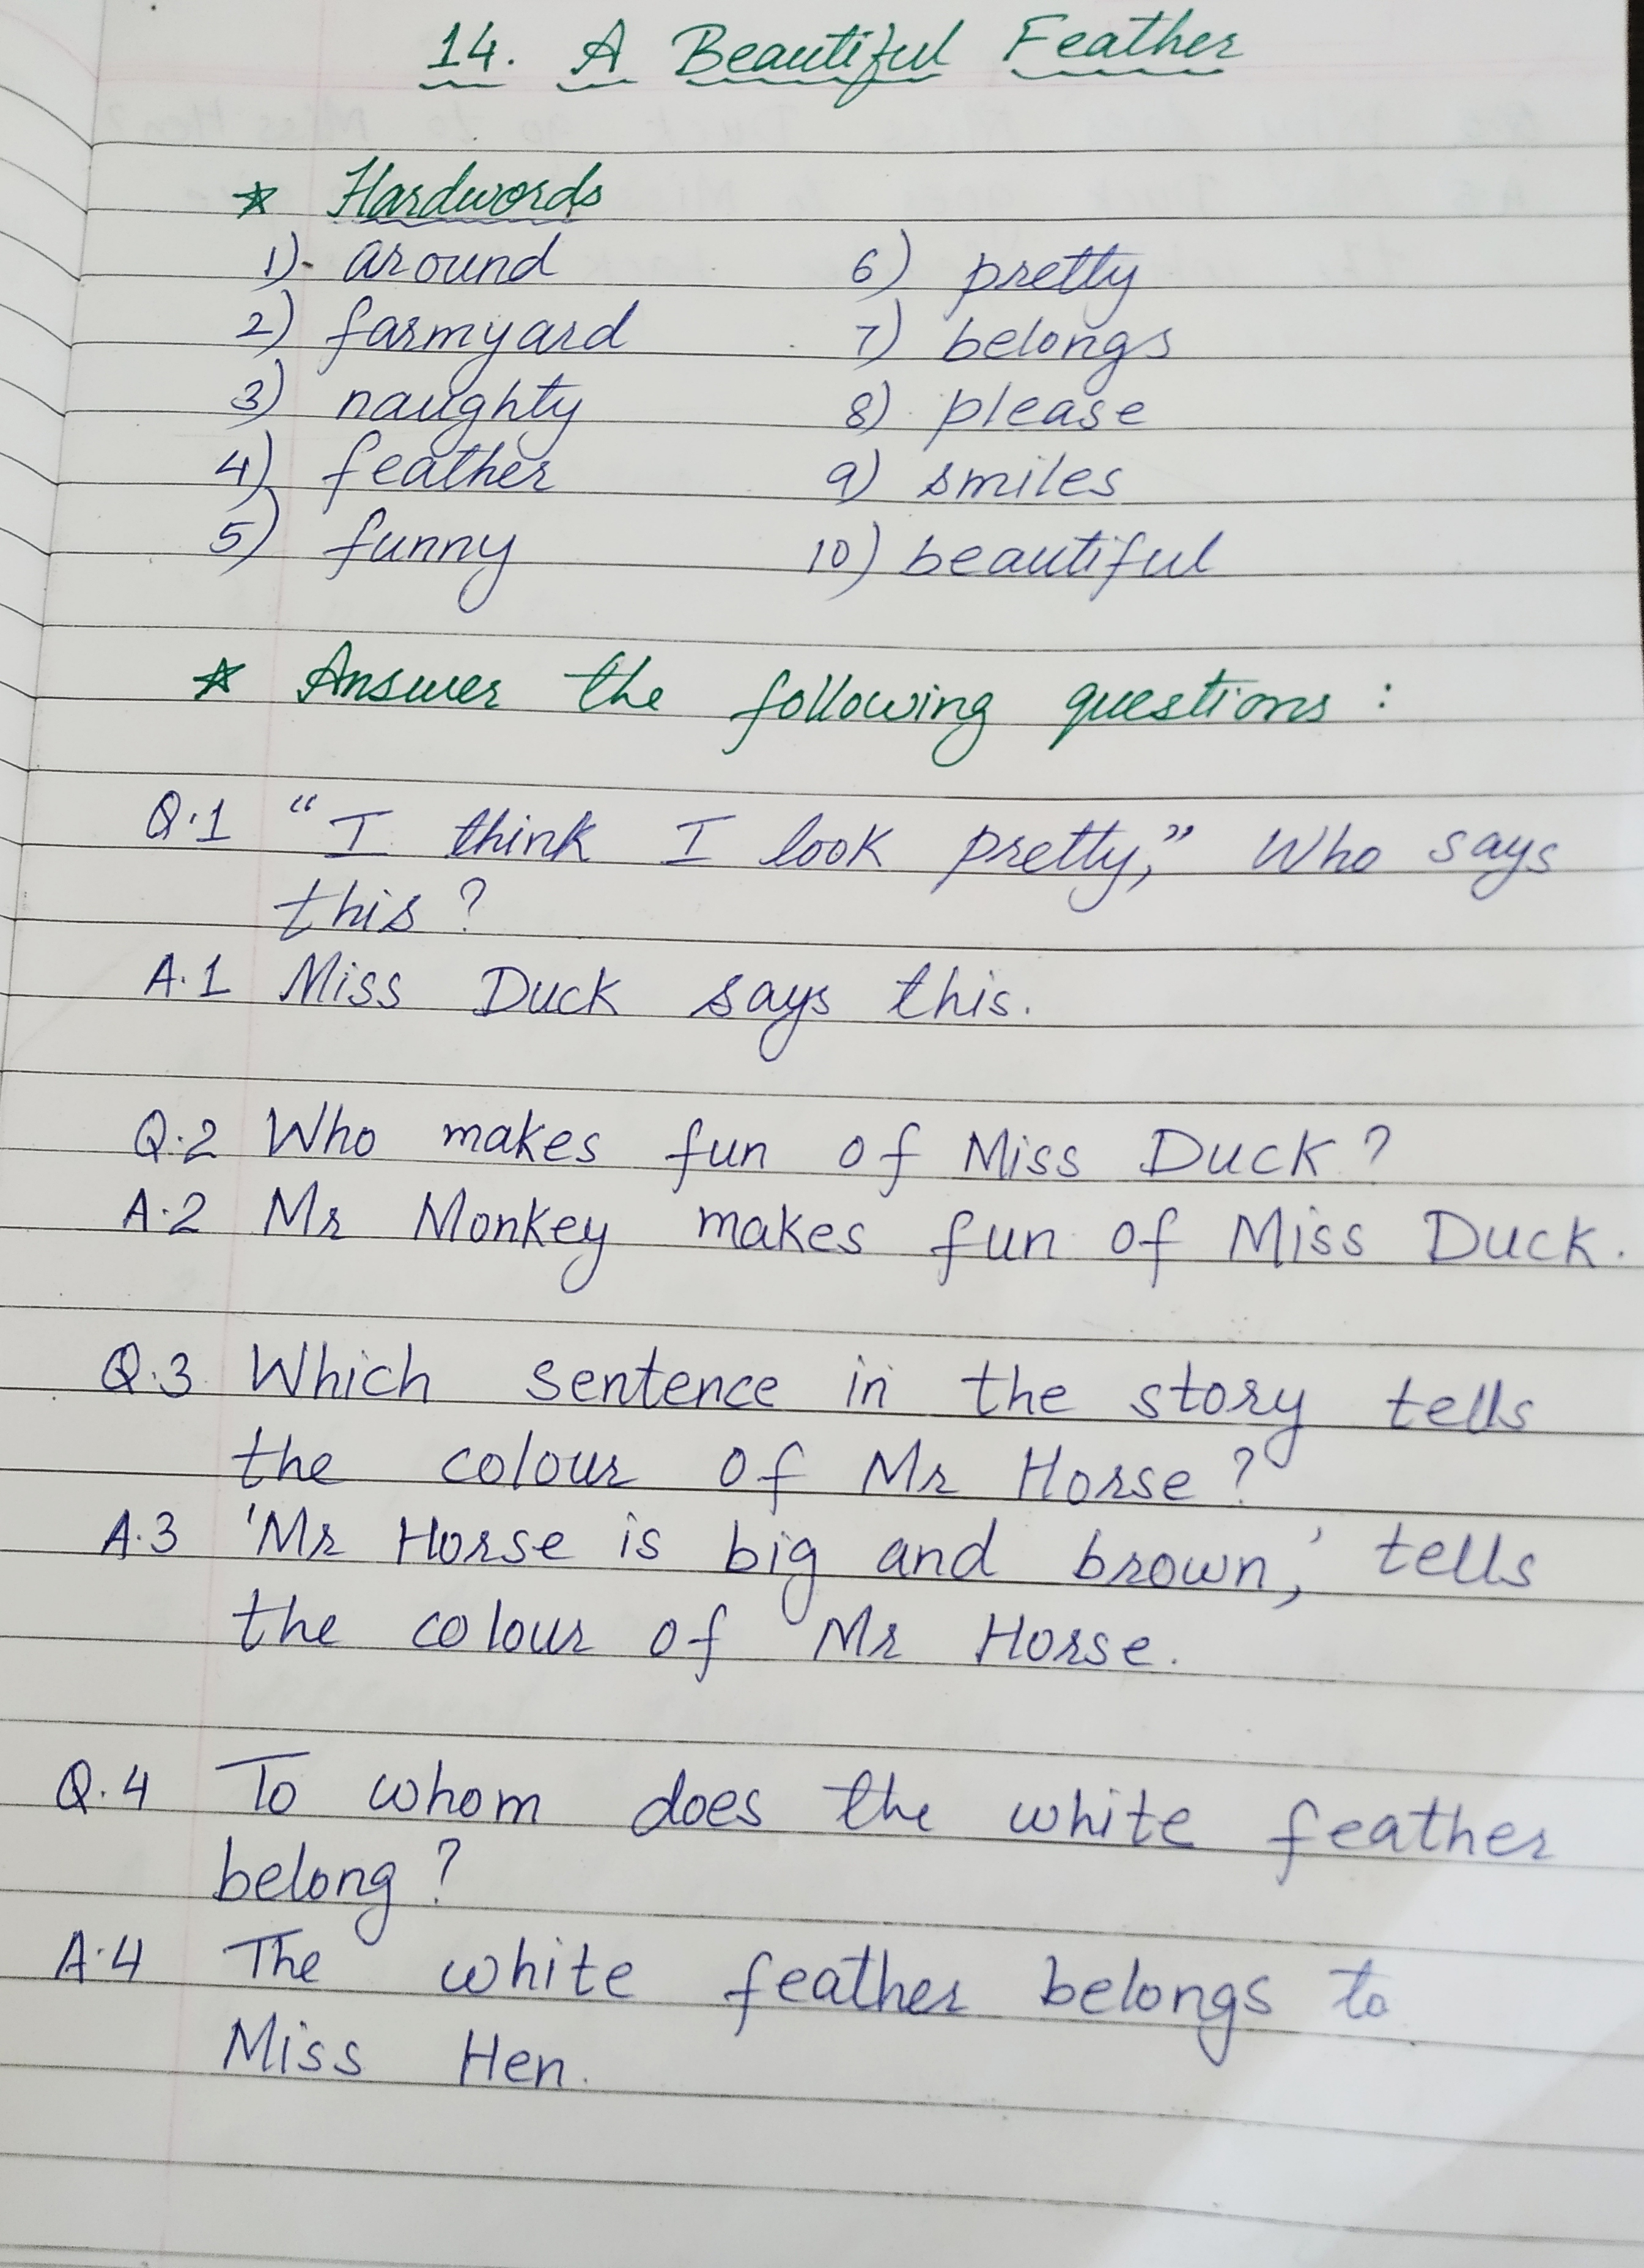 14. A Beautiful Feather
* Hardwords
1) around 6) pretty
2) farmyard 7) belongs
3) naughty 8) please
4) feather 9) smiles
5) funny 10) beautiful
* Answer the following questions :
Q.1 "I think I look pretty," Who says
this ?
A.1 Miss Duck says this.
Q.2 Who makes fun of Miss Duck ?
A.2 Mr Monkey makes fun of Miss Duck.
Q.3 Which sentence in the story tells
the colour of Mr Horse ?
A.3 'Mr Horse is big and brown,' tells
the colour of Mr Horse.
Q.4 To whom does the white feather
belong ?
A.4 The white feather belongs to
Miss Hen.